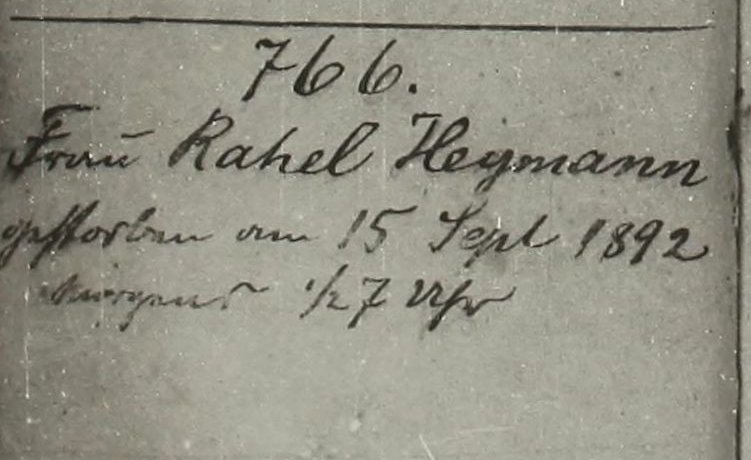 766.
Frau Rahel Heymann
gestorben am 15 Sept 1892
Morgens 1/2 7 Uhr